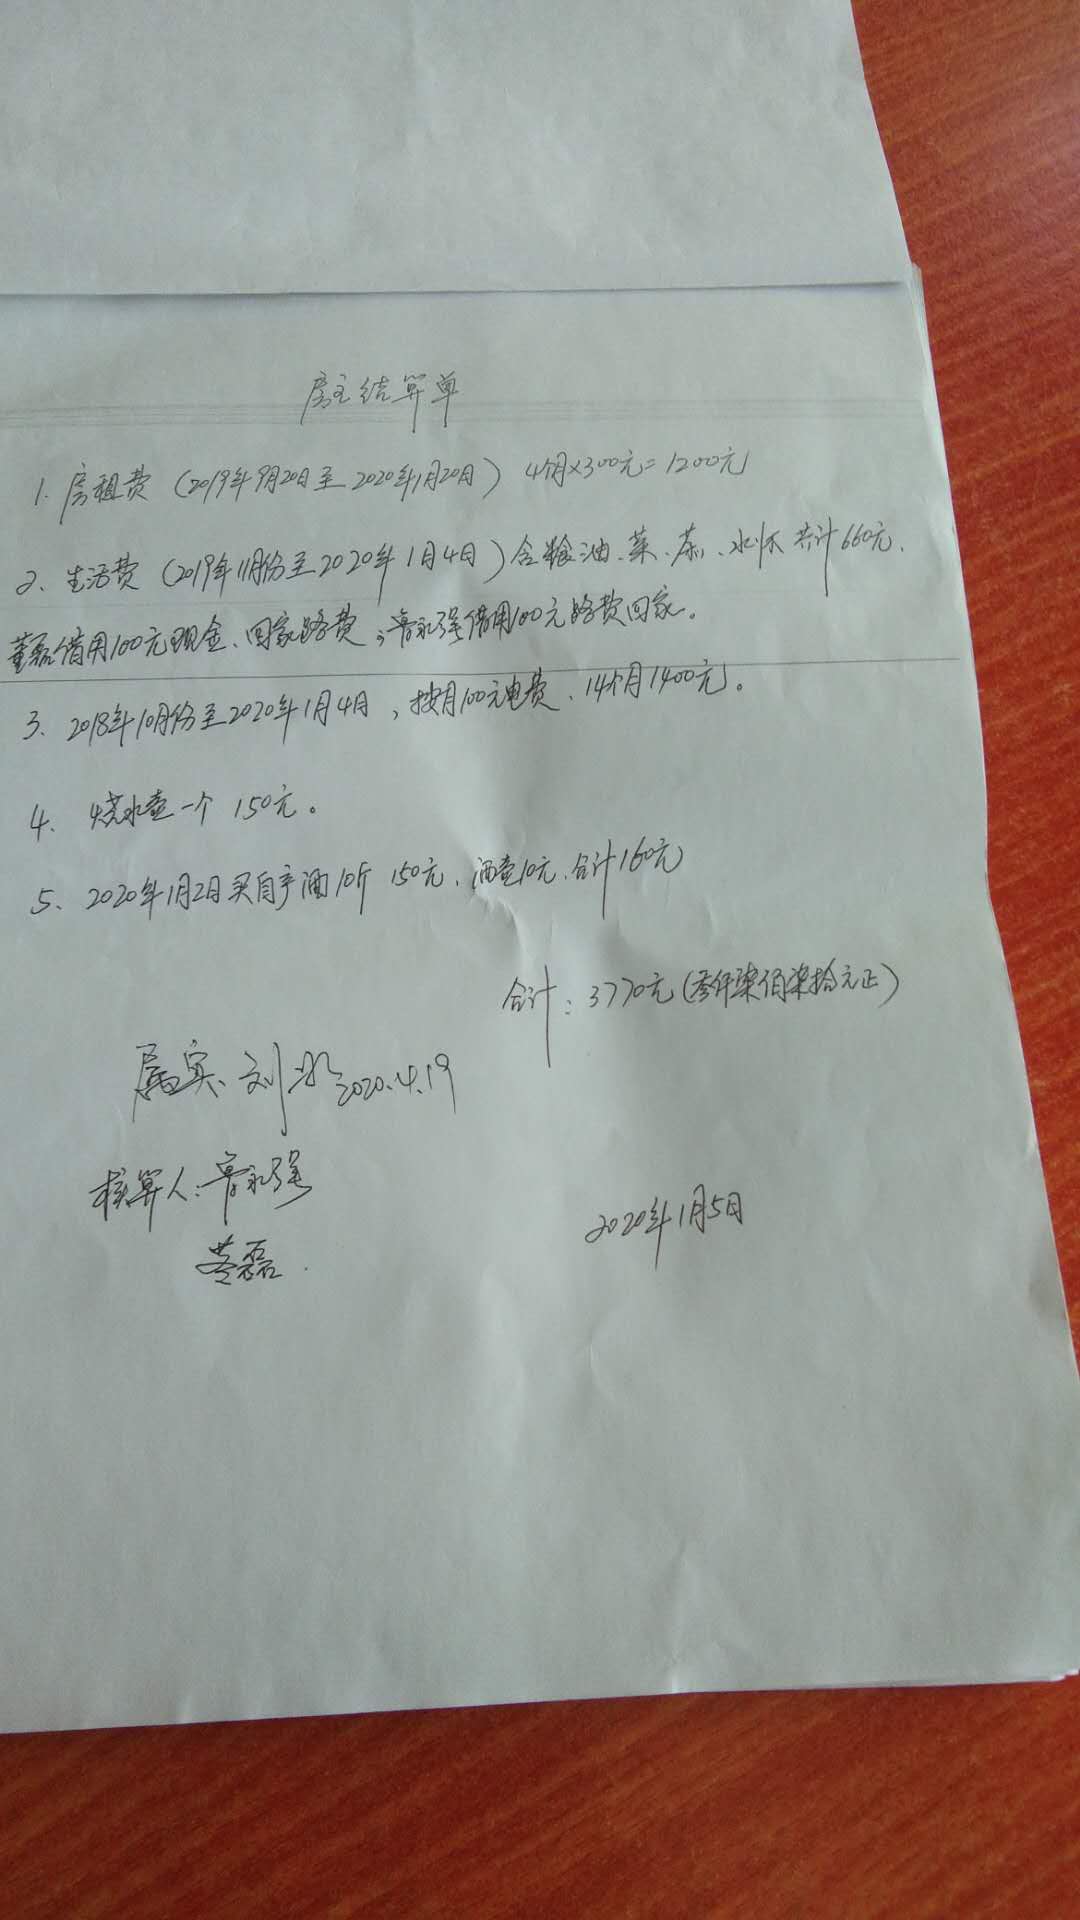 房主结算单
1. 房租费（2019年9月20日至2020年1月20日） 4个月×300元=1200元
2、生活费（2019年11月份至2020年1月4日）含粮油、菜、茶、水杯 共计660元.
董磊借用100元现金、回家路费，鲁永强借用100元路费回家。
3、2018年10月份至2020年1月4日，按月100元电费、14个月1400元。
4、烧水壶一个 150元。
5、2020年1月2日买自产酒10斤 150元、酒壶10元、合计160元
合计：3770元（叁仟柒佰柒拾元正）
属实、刘 2020.4.19
核算人：鲁永强
董磊
2020年1月5日